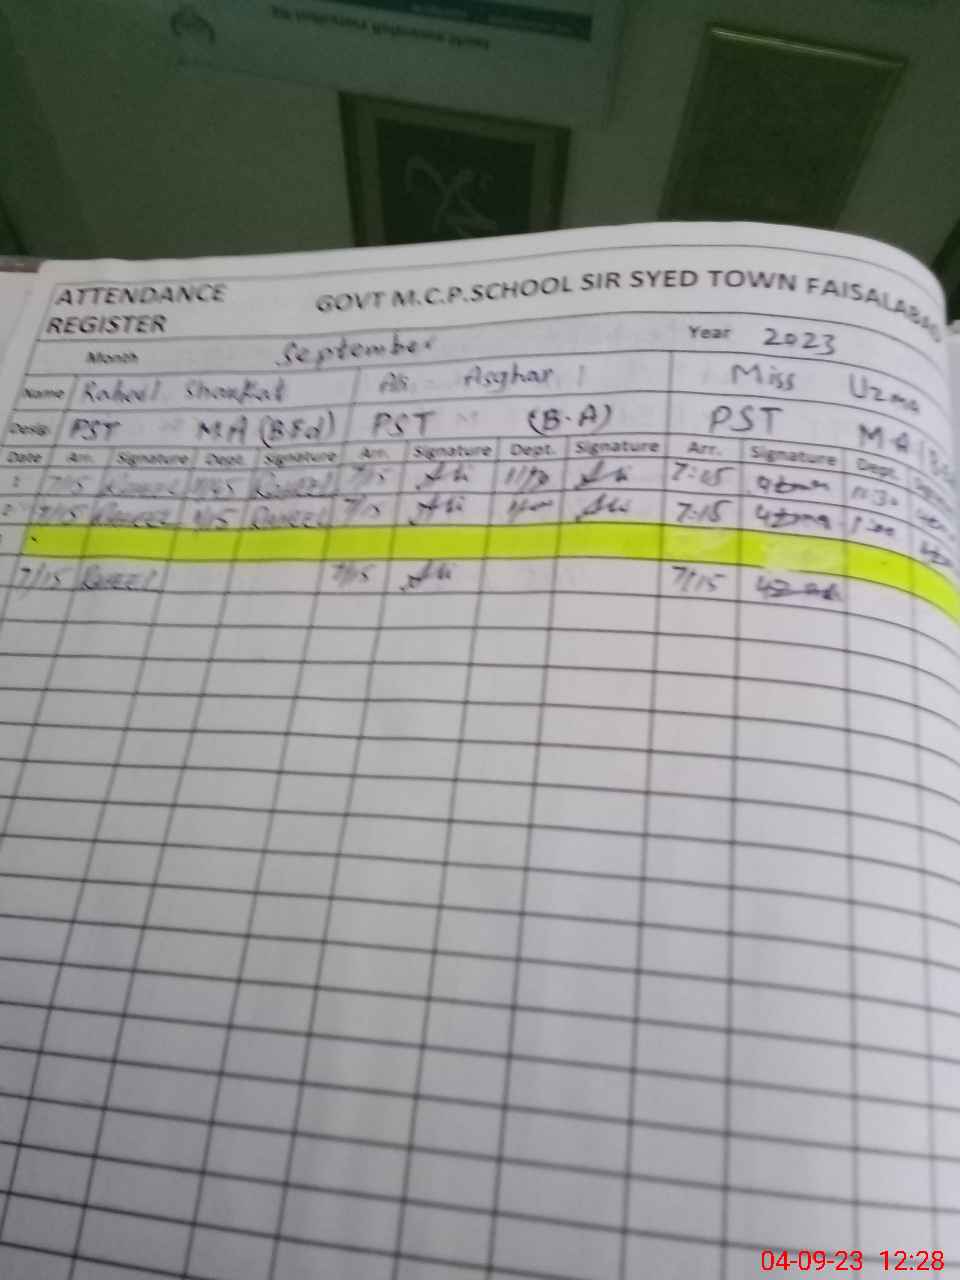 ATTENDANCE REGISTER
GOVT M.C.P.SCHOOL SIR SYED TOWN FAISALABAD
Month September Year 2023
Name Raheel Shoukat Ali Asghar Miss Uzma
Desig. PST MA (B.Ed) PST (B.A) PST MA
Date Arr. Signature Dept. Signature Arr. Signature Dept. Signature Arr. Signature Dept.
1 7/15 RAHEEL RAHEEL 7/15 Ali Ali 7:15 Uzma 11:30
2 7/15 RAHEEL 1/15 RAHEEL 7/15 Ali Ali 7:15 Uzma
7/15 RAHEEL 7/15 Ali 7/15 Uzma
04-09-23 12:28